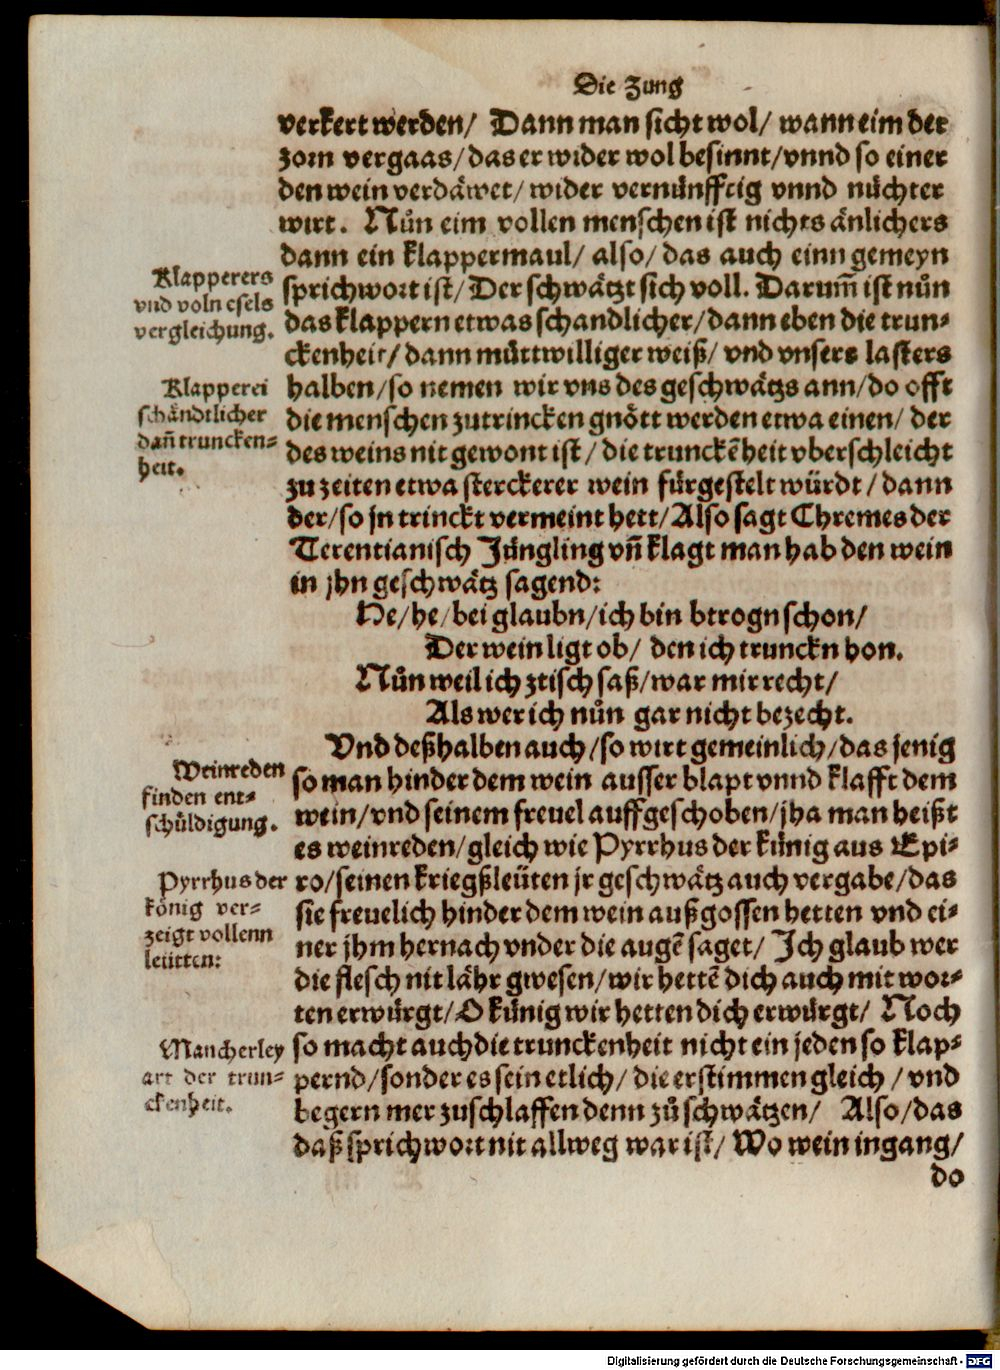 Die Zung
verkert werden/ Dann man sicht wol/ wann eim der
zorn vergaas/ das er wider wol besinnt/ vnnd so einer
den wein verdäwet/ wider vernünfftig vnnd nüchter
wirt. Nůn eim vollen menschen ist nichts änlichers
dann ein klappermaul/ also/ das auch einn gemeyn
sprichwort ist/ Der schwätzt sich voll. Darum̃ ist nůn
das klappern etwas schandlicher/ dann eben die trun⸗
ckenheit/ dann můttwilliger weiß/ vnd vnsers lasters
halben/ so nemen wir vns des geschwätzs ann/ do offt
die menschen zutrincken gnött werden etwa einen/ der
des weins nit gewont ist/ die trunckẽheit vberschleicht
zu zeiten etwa sterckerer wein fürgestelt würdt/ dann
der/ so jn trinckt vermeint hett/ Also sagt Chremes der
Terentianisch Jüngling vñ klagt man hab den wein
in jhn geschwätz sagend:
He/ he/ bei glaubn/ ich bin btrogn schon/
Der wein ligt ob/ den ich trunckn hon.
Nůn weil ich ztisch saß/ war mir recht/
Als wer ich nůn gar nicht bezecht.
Vnd deßhalben auch/ so wirt gemeinlich/ das jenig
so man hinder dem wein ausser blapt vnnd klafft dem
wein/ vnd seinem freuel auffgeschoben/ jha man heißt
es weinreden/ gleich wie Pyrrhus der künig aus Epi⸗
ro/ seinen kriegßleüten jr geschwätz auch vergabe/ das
sie freuelich hinder dem wein außgossen hetten vnd ei⸗
ner jhm hernach vnder die augẽ saget/ Ich glaub wer
die flesch nit lähr gwesen/ wir hettẽ dich auch mit wor⸗
ten erwürgt/ O künig wir hetten dich erwürgt/ Noch
so macht auch die trunckenheit nicht ein jeden so klap⸗
pernd/ sonder es sein etlich/ die erstimmen gleich/ vnd
begern mer zuschlaffen denn zů schwätzen/ Also/ das
daß sprichwort nit allweg war ist/ Wo wein ingang/
do
Klapperers
vnd voln esels
vergleichung.
Klapperei
schändtlicher
dañ truncken⸗
heit.
Weinreden
finden ent⸗
schüldigung.
Pyrrhus der
könig ver⸗
zeigt vollenn
leütten:
Mancherley
art der trun⸗
ckenheit.
Digitalisierung gefördert durch die Deutsche Forschungsgemeinschaft - DFG